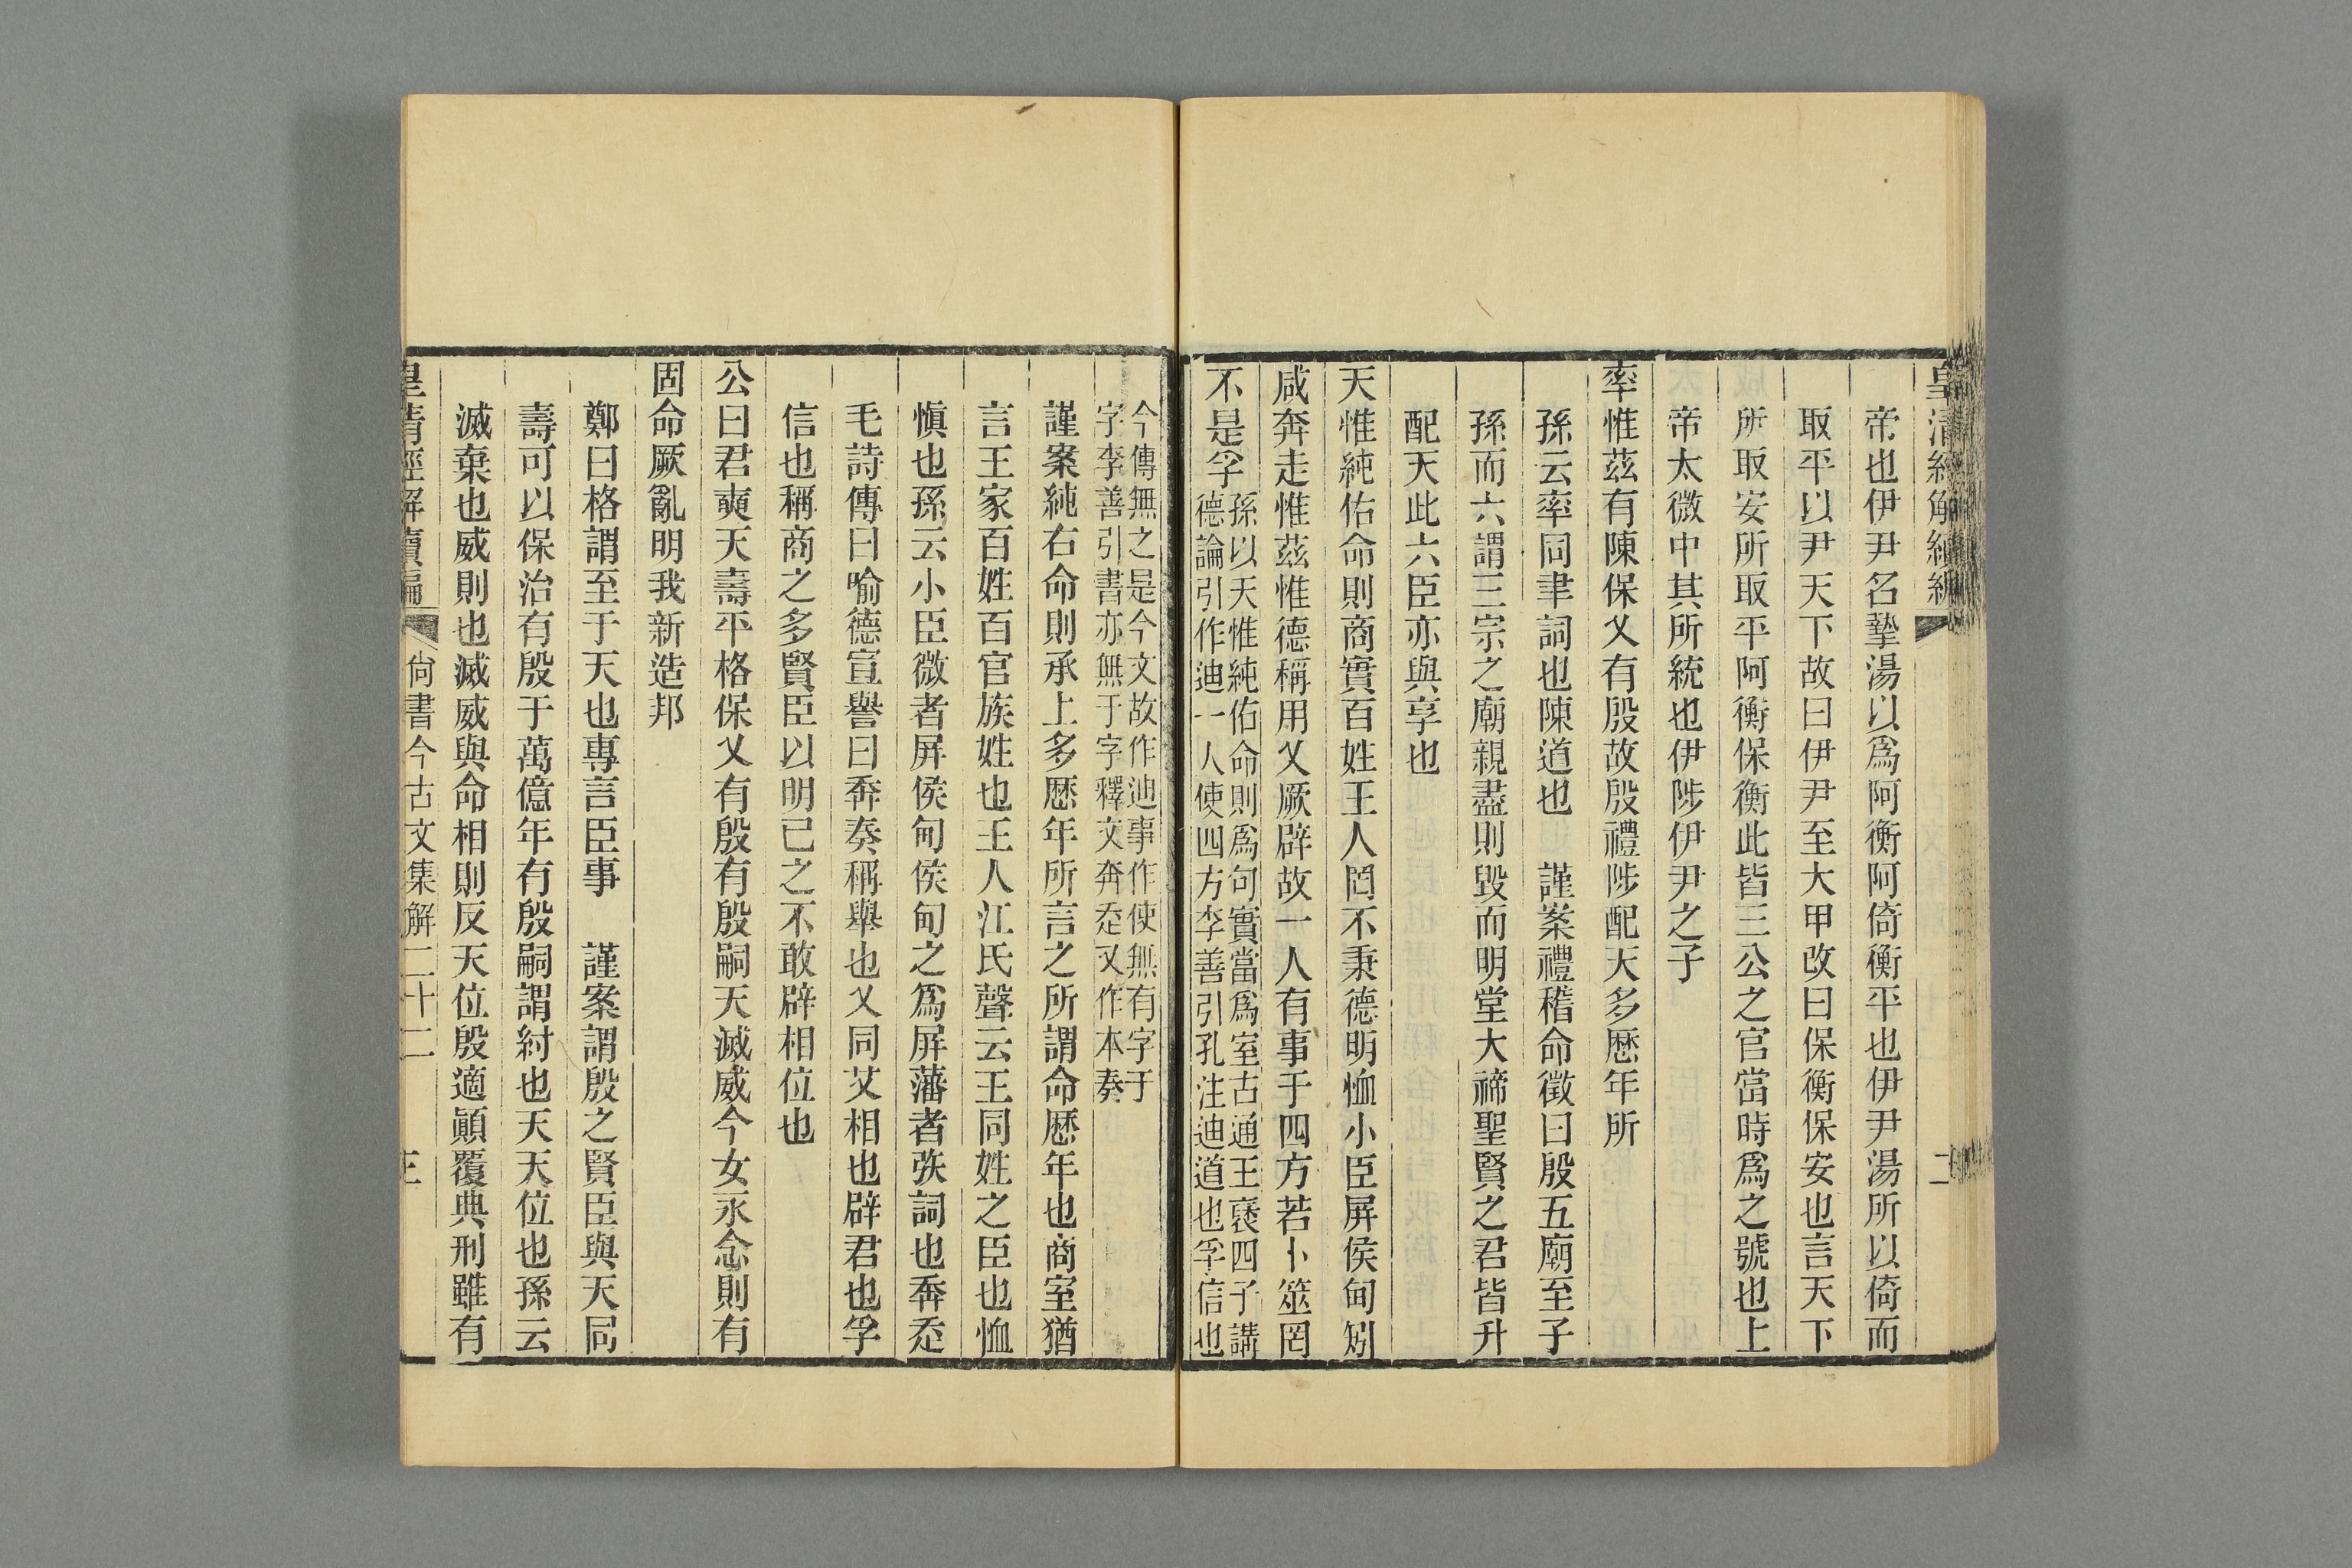 帝也伊尹名摯湯以爲阿衡阿倚衡平也伊尹湯所以倚而
取平以尹天下故曰伊尹至大甲改曰保衡保安也言天下
所取安所取平阿衡保衡此皆三公之官當時爲之號也上
帝太微中其所統也伊陟伊尹之子
率惟茲有陳保乂有殷故殷禮陟配天多歷年所
孫云率同聿詞也陳道也　謹案禮稽命徵曰殷五廟至子
孫而六謂三宗之廟親盡則毀而明堂大禘聖賢之君皆升
配天此六臣亦與享也
天惟純佑命則商實百姓王人罔不秉德明恤小臣屏侯甸矧
咸奔走惟茲惟德稱用乂厥辟故一人有事于四方若卜筮罔
不是孚
孫以天惟純佑命則爲句實當爲室古通王褒四子講
德論引作迪一人使四方李善引孔注迪道也孚信也
今傳無之是今文故作迪事作使無有字于
字李善引書亦無于字釋文奔走又作本奏
謹案純右命則承上多歷年所言之所謂命歷年也商室猶
言王家百姓百官族姓也王人江氏聲云王同姓之臣也恤
愼也孫云小臣微者屏侯甸侯甸之爲屏藩者矤詞也奔走
毛詩傳曰喻德宣譽曰奔奏稱舉也乂同艾相也辟君也孚
信也稱商之多賢臣以明己之不敢辟相位也
公曰君奭天壽平格保乂有殷有殷嗣天滅威今女永念則有
固命厥亂明我新造邦
鄭曰格謂至于天也專言臣事　謹案謂殷之賢臣與天同
壽可以保治有殷于萬億年有殷嗣謂紂也天天位也孫云
滅棄也威則也滅威與命相則反天位殷適顚覆典刑雖有
皇清經解續編　尙書今古文集解二十二　三